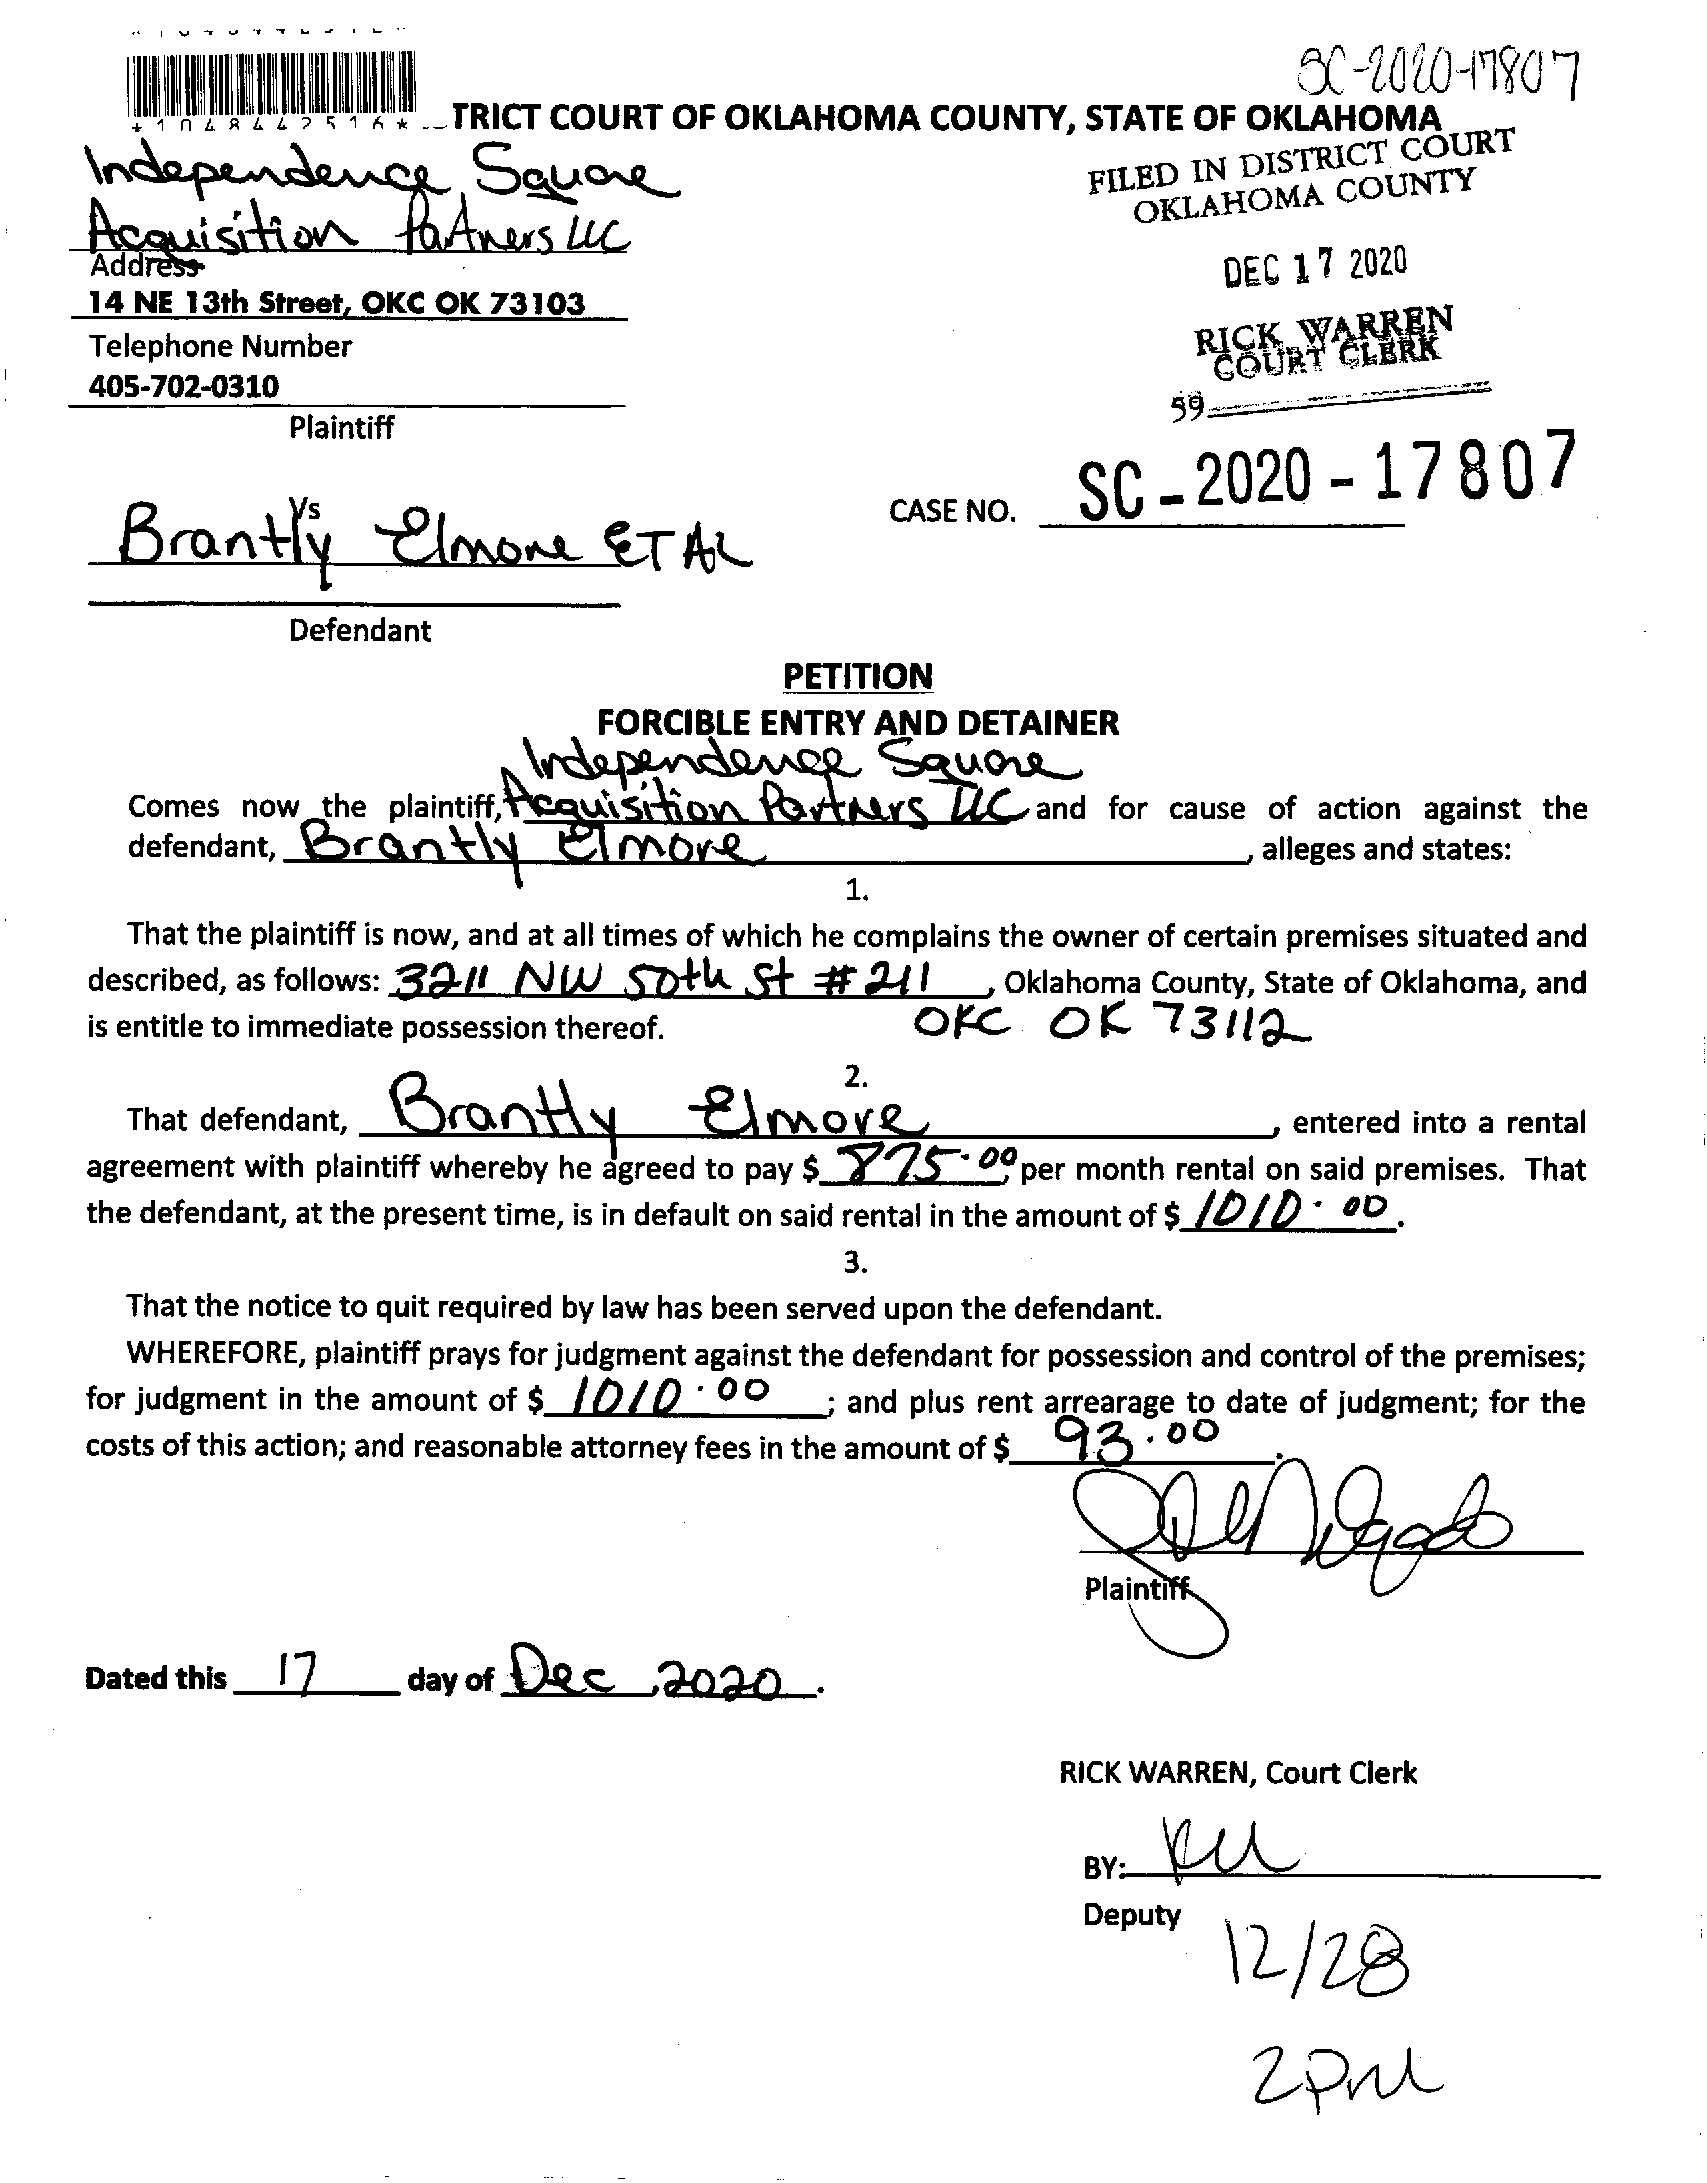 SC-2020-17807
TRICT COURT OF OKLAHOMA COUNTY, STATE OF OKLAHOMA
Independence Square
Acquisition Partners LLC
FILED IN DISTRICT COURT
OKLAHOMA COUNTY
Address
14 NE 13th Street, OKC OK 73103
DEC 17 2020
Telephone Number
405-702-0310
RICK WARREN
COURT CLERK
59
Plaintiff
Vs
CASE NO. SC-2020-17807
Brantly Elmore ET AL
Defendant
PETITION
FORCIBLE ENTRY AND DETAINER
Independence Square
Comes now the plaintiff, Acquisition Partners LLC and for cause of action against the
defendant, Brantly Elmore, alleges and states:
1.
That the plaintiff is now, and at all times of which he complains the owner of certain premises situated and
described, as follows: 3211 NW 50th St #211, Oklahoma County, State of Oklahoma, and
is entitle to immediate possession thereof. OKC OK 73112
2.
That defendant, Brantly Elmore, entered into a rental
agreement with plaintiff whereby he agreed to pay $ 875.00 per month rental on said premises. That
the defendant, at the present time, is in default on said rental in the amount of $ 1010.00.
3.
That the notice to quit required by law has been served upon the defendant.
WHEREFORE, plaintiff prays for judgment against the defendant for possession and control of the premises;
for judgment in the amount of $ 1010.00; and plus rent arrearage to date of judgment; for the
costs of this action; and reasonable attorney fees in the amount of $ 93.00.
Plaintiff
Dated this 17 day of Dec, 2020.
RICK WARREN, Court Clerk
BY:
Deputy
12/28
2pm